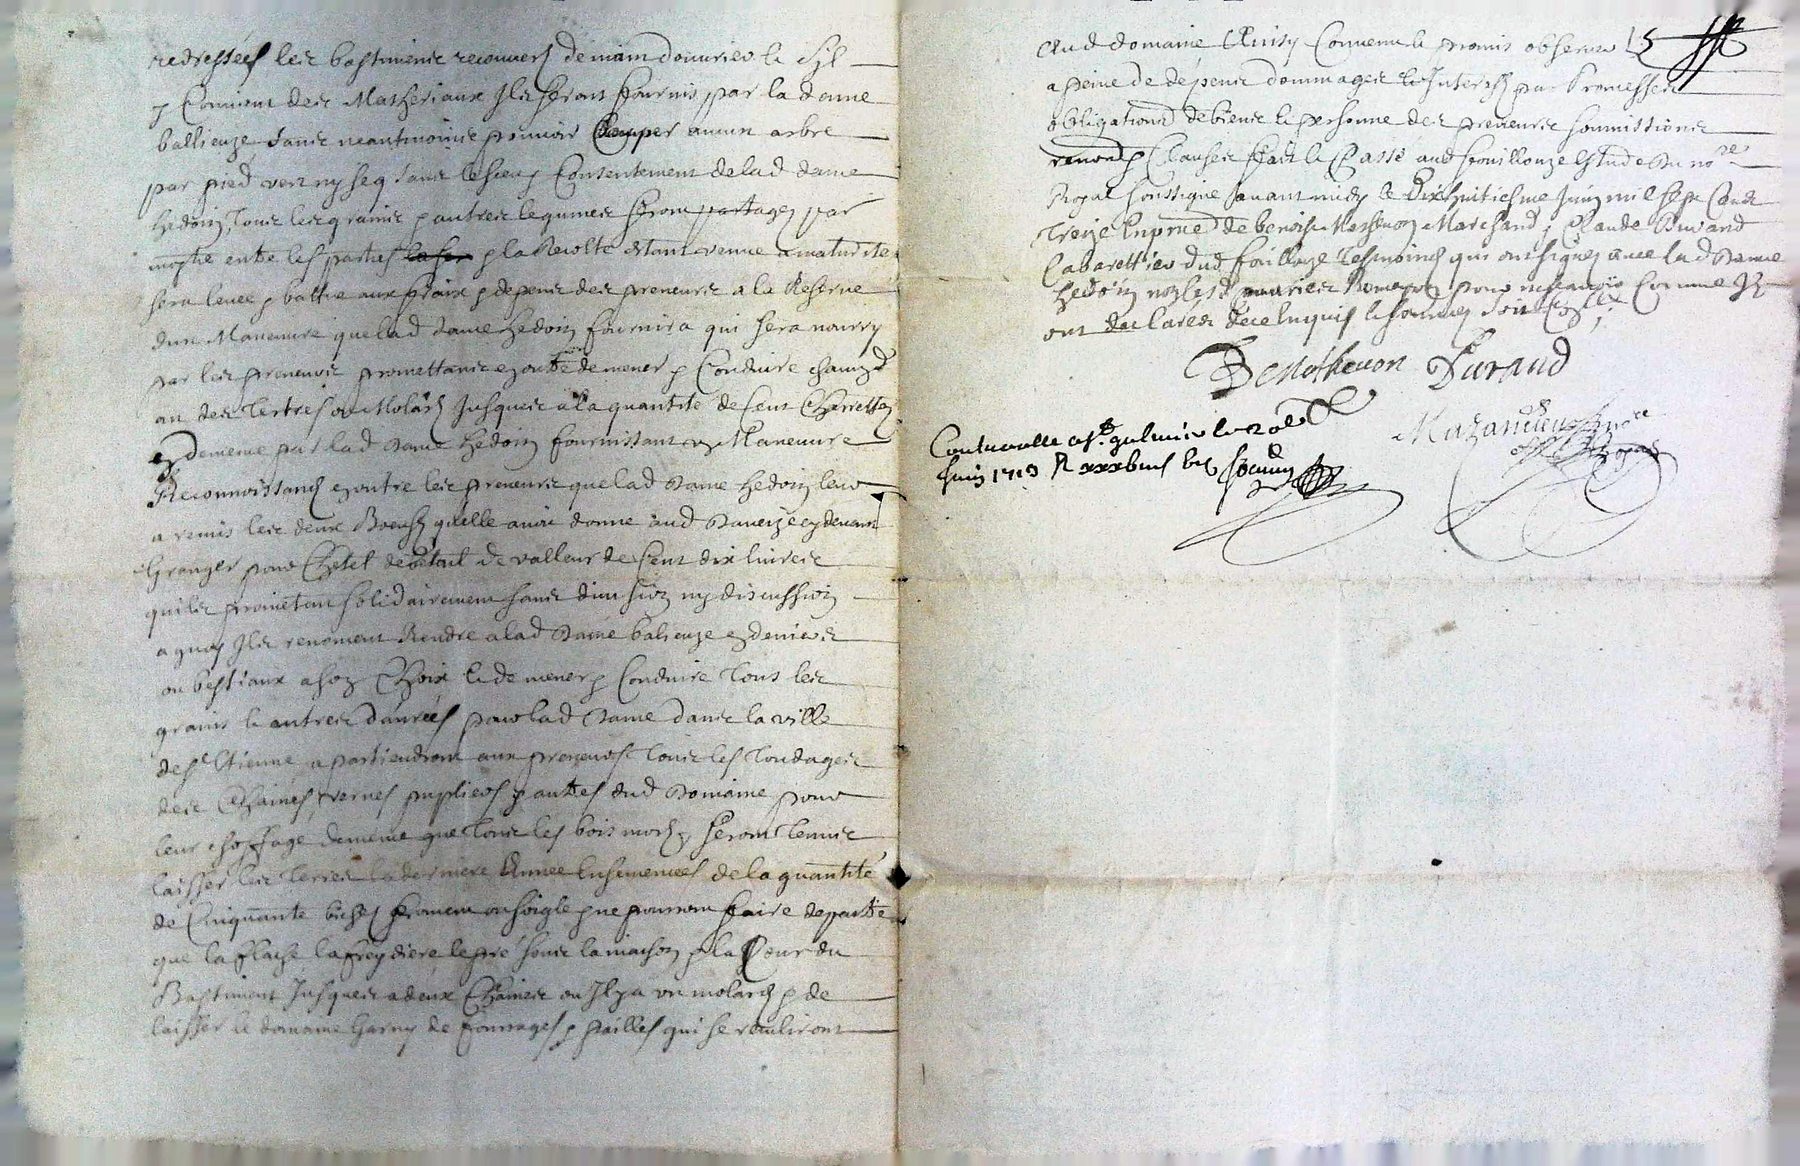 redressées les bastiments recouvers de main douvrier & s'il
y convient des matheriaux ils seront fournis par la dame
ballieuze sans neantmoins pouvoir couper aucun arbre
par pied vert ny seq sans le consentement de lad dame
hedoin, tous les grains & autres legumes seront partagez par
moytié entre les parties & la recolte estant venue a maturité
sera levée & battue aux fraix & depens des preneurs a la reserve
dun maneuvre que lad dame hedoin fournira qui sera nourry
par les preneurs promettants en outre de mener & conduire chaun
an des tertres ou molards jusques a la quantité de cent charrettes
en deme me par lad dame hedoin fournissant un maneuvre
Reconnoissants en outre les preneurs que lad dame hedoin leur
a remis les deux boeufs qu'elle avoit donne aud cy devant
granger pour chetel de valleur de cent dix livres
qu'ils promettent solidairement sans division ny discussion
a quoy ils renoncent rendre a lad dame balieuze en deniers
ou bestiaux a son choix & de mener & conduire tous les
grains & autres danrées pour lad dame dans la ville
de st Etienne, apartiendront aux preneurs tous les tondages
des chaines, vernes, pupliers & autres dud domaine pour
leur choffage de meme que tous les bois morts, seront tenus
laisser les terres la derniere année ensemencées de la quantité
de cinquante bichets froment ou soigle & ne pourront faire depaitre
que la flache la freydiere le pré sous la maison & la cour du
bastiment jusques a deux chaines ou il y a un molard & de
laisser le domaine garny de fourrages & pailles qui se reculiront
aud domaine Ainsy convenu & promis observer
a peine de depens dommages & interests par promesses
obligations de biens & personne des preneurs soumissions
renon & clauses fait & passé aud fouillouze estude du nore
Royal soussigné avant midy le dixhuitiesme juin mil sept cents
treize en pnce de benoist mothevon marchand, & Claude Durand
cabarettier dud foillouze tesmoins qui ont signez avec lad dame
hedoin non les d preneurs pour ne scavoir comme ils
ont declarez de ce enquis & sommez
B Mothevon Durand
Mazandieu nore
royal
Contrerolle a st galmier le 20e
juin 1713 R